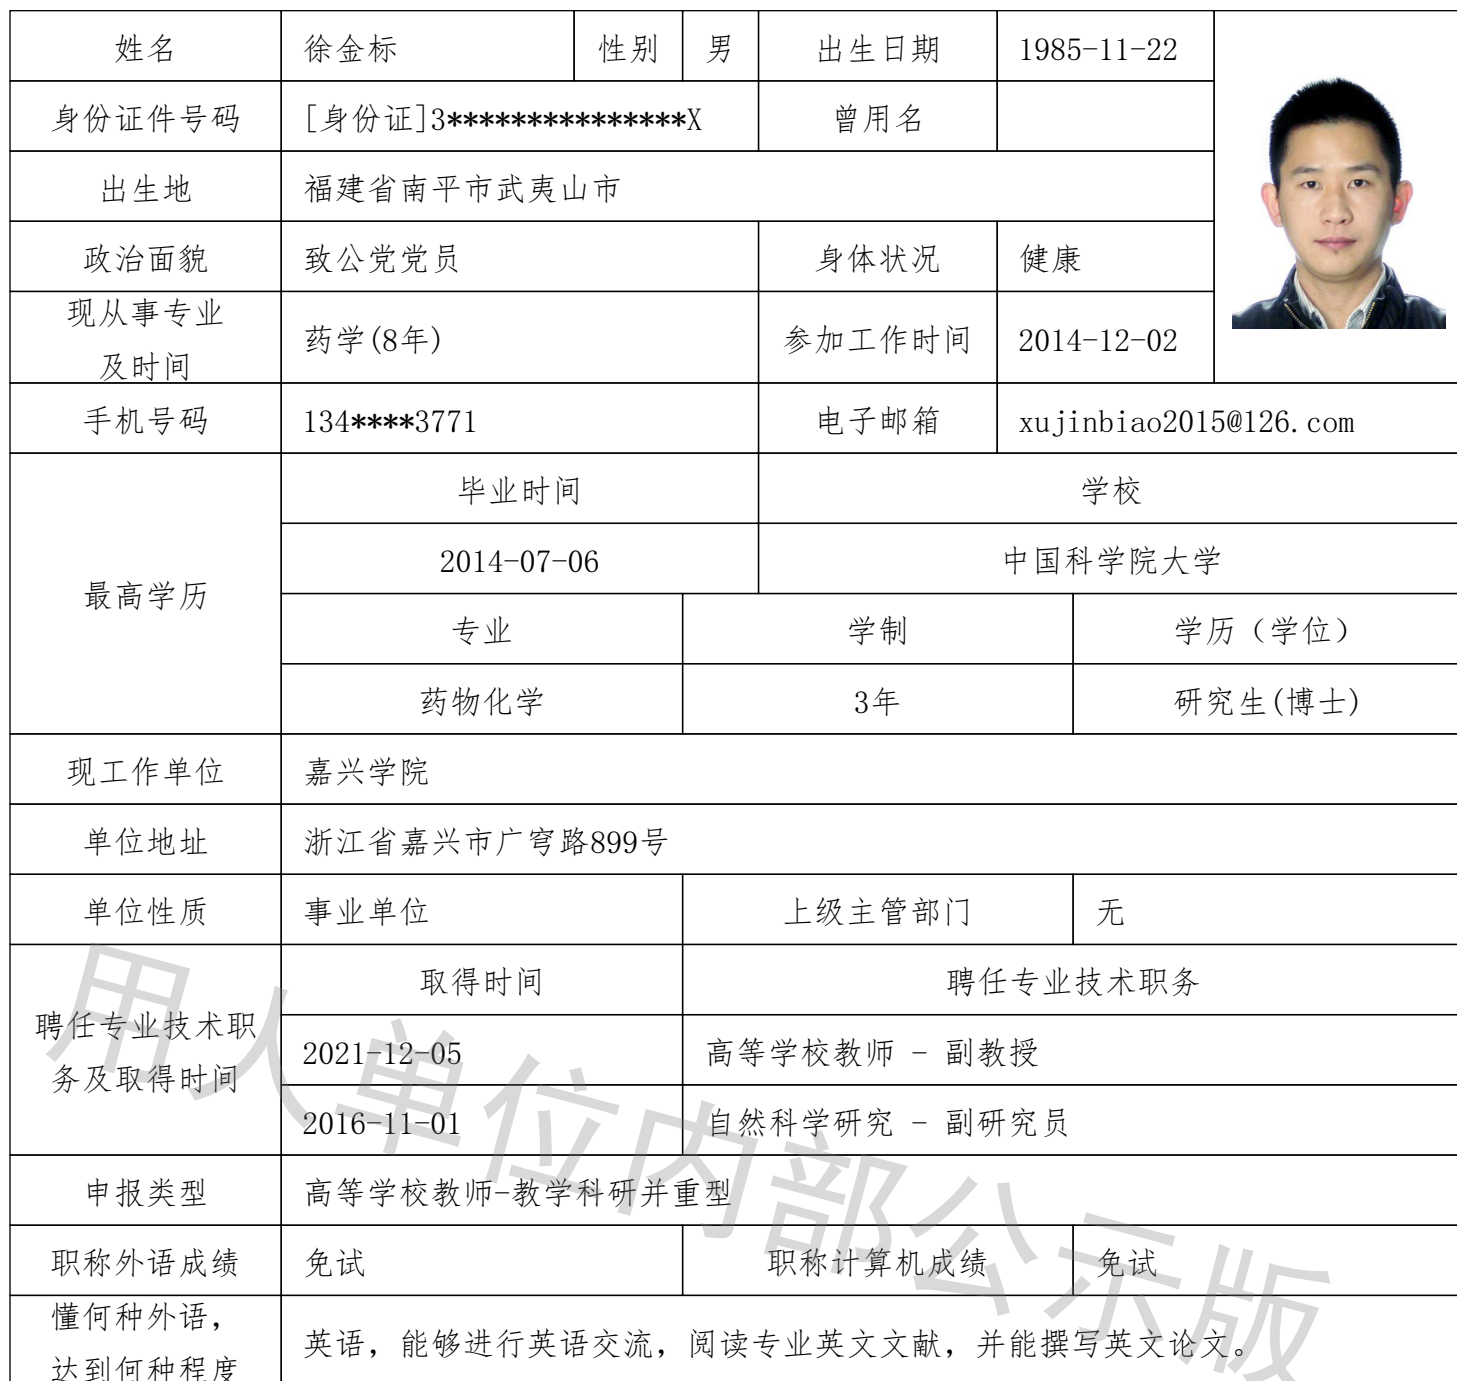 姓名 徐金标 性别 男 出生日期 1985-11-22
身份证件号码 [身份证]3***************X 曾用名
出生地 福建省南平市武夷山市
政治面貌 致公党党员 身体状况 健康
现从事专业
及时间 药学(8年) 参加工作时间 2014-12-02
手机号码 134****3771 电子邮箱 xujinbiao2015@126.com
最高学历
毕业时间 学校
2014-07-06 中国科学院大学
专业 学制 学历（学位）
药物化学 3年 研究生(博士)
现工作单位 嘉兴学院
单位地址 浙江省嘉兴市广穹路899号
单位性质 事业单位 上级主管部门 无
聘任专业技术职
务及取得时间
取得时间 聘任专业技术职务
2021-12-05 高等学校教师 - 副教授
2016-11-01 自然科学研究 - 副研究员
申报类型 高等学校教师-教学科研并重型
职称外语成绩 免试 职称计算机成绩 免试
懂何种外语，
达到何种程度 英语，能够进行英语交流，阅读专业英文文献，并能撰写英文论文。
用人单位内部公示版